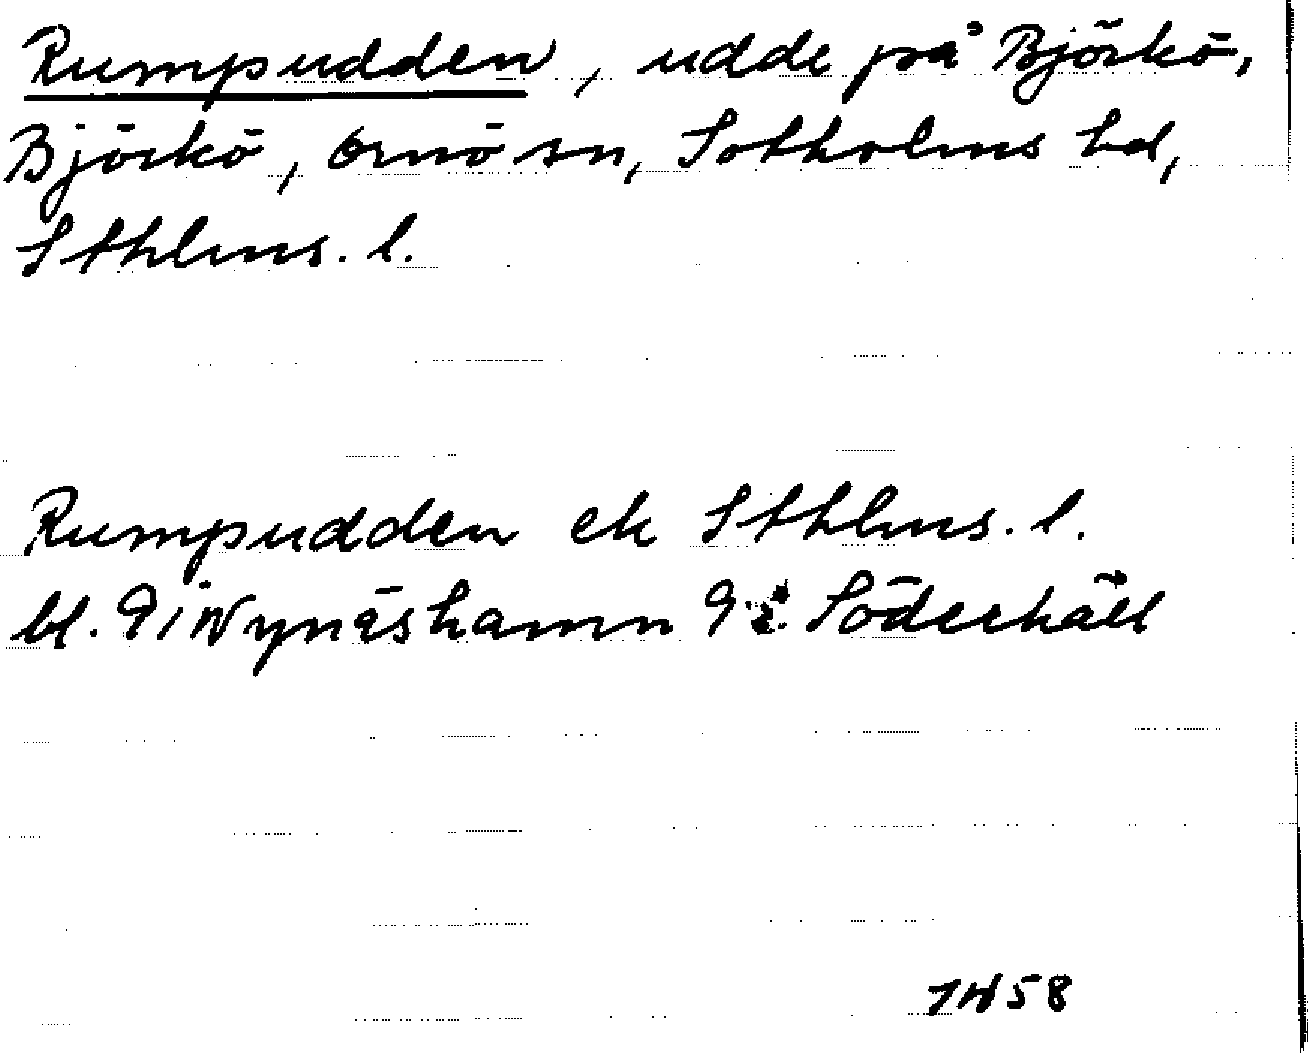 Rumpudden, udde på Björkö,
Björkö, Ornö sn, Sotholms hd,
Sthlms. l.
Rumpudden ek Sthlms. l.
bl. 9 i Nynäshamn 9 Söderhäll
1H58